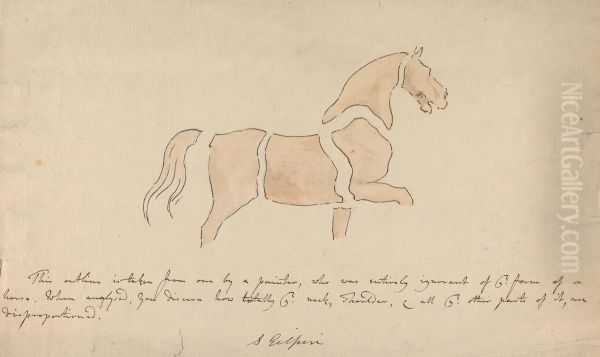 This outline is taken from one by a painter, who was entirely ignorant of ye. form of a
horse. When analysed, you discern how totally ye. neck, shoulder, & all ye. other parts of it, are
disproportioned.
S Gilpin
NiceArtGallery.com